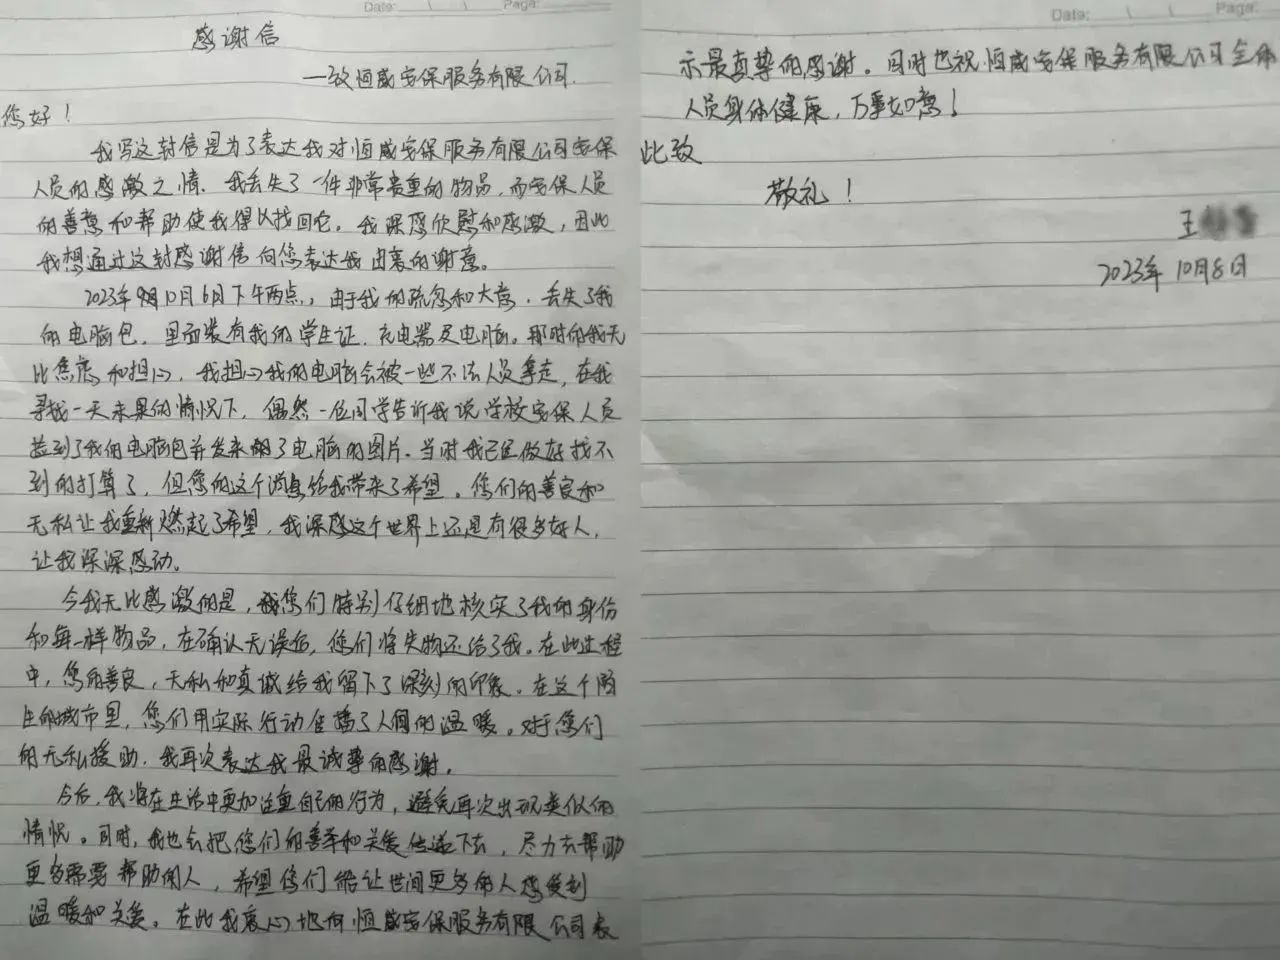 Date:
Page:
感谢信
—致恒威安保服务有限公司.
您好！
我写这封信是为了表达我对恒威安保服务有限公司安保
人员的感激之情. 我丢失了一件非常贵重的物品，而安保人员
的善意和帮助使我得以找回它。我深感欣慰和感激，因此
我想通过这封感谢信向您表达我由衷的谢意。
2023年10月6日下午两点，由于我的疏忽和大意，丢失了我
的电脑包，里面装有我的学生证、充电器及电脑。那时的我无
比焦虑和担心，我担心我的电脑会被一些不法人员拿走，在我
寻找一天未果的情况下，偶然一位同学告诉我说学校安保人员
捡到了我的电脑包并发来了电脑的图片。当时我已经做好找不
到的打算了，但您的这个消息给我带来了希望。您们的善良和
无私让我重新燃起了希望，我深感这个世界上还是有很多好人，
让我深深感动。
令我无比感激的是，您们特别仔细地核实了我的身份
和每一样物品，在确认无误后，您们将失物还给了我。在此过程
中，您的善良，无私和真诚给我留下了深刻的印象。在这个陌
生的城市里，您们用实际行动传播了人间的温暖。对于您们
的无私援助，我再次表达我最诚挚的感谢。
今后，我将在生活中更加注重自己的行为，避免再次出现类似的
情况。同时，我也会把您们的善举和关爱传递下去，尽力去帮助
更多需要帮助的人，希望您们能让世间更多的人感受到
温暖和关爱。在此我衷心地向恒威安保服务有限公司表
Date:
Page:
示最真挚的感谢。同时也祝恒威安保服务有限公司全体
人员身体健康，万事如意！
此致
敬礼！
王
2023年10月8日